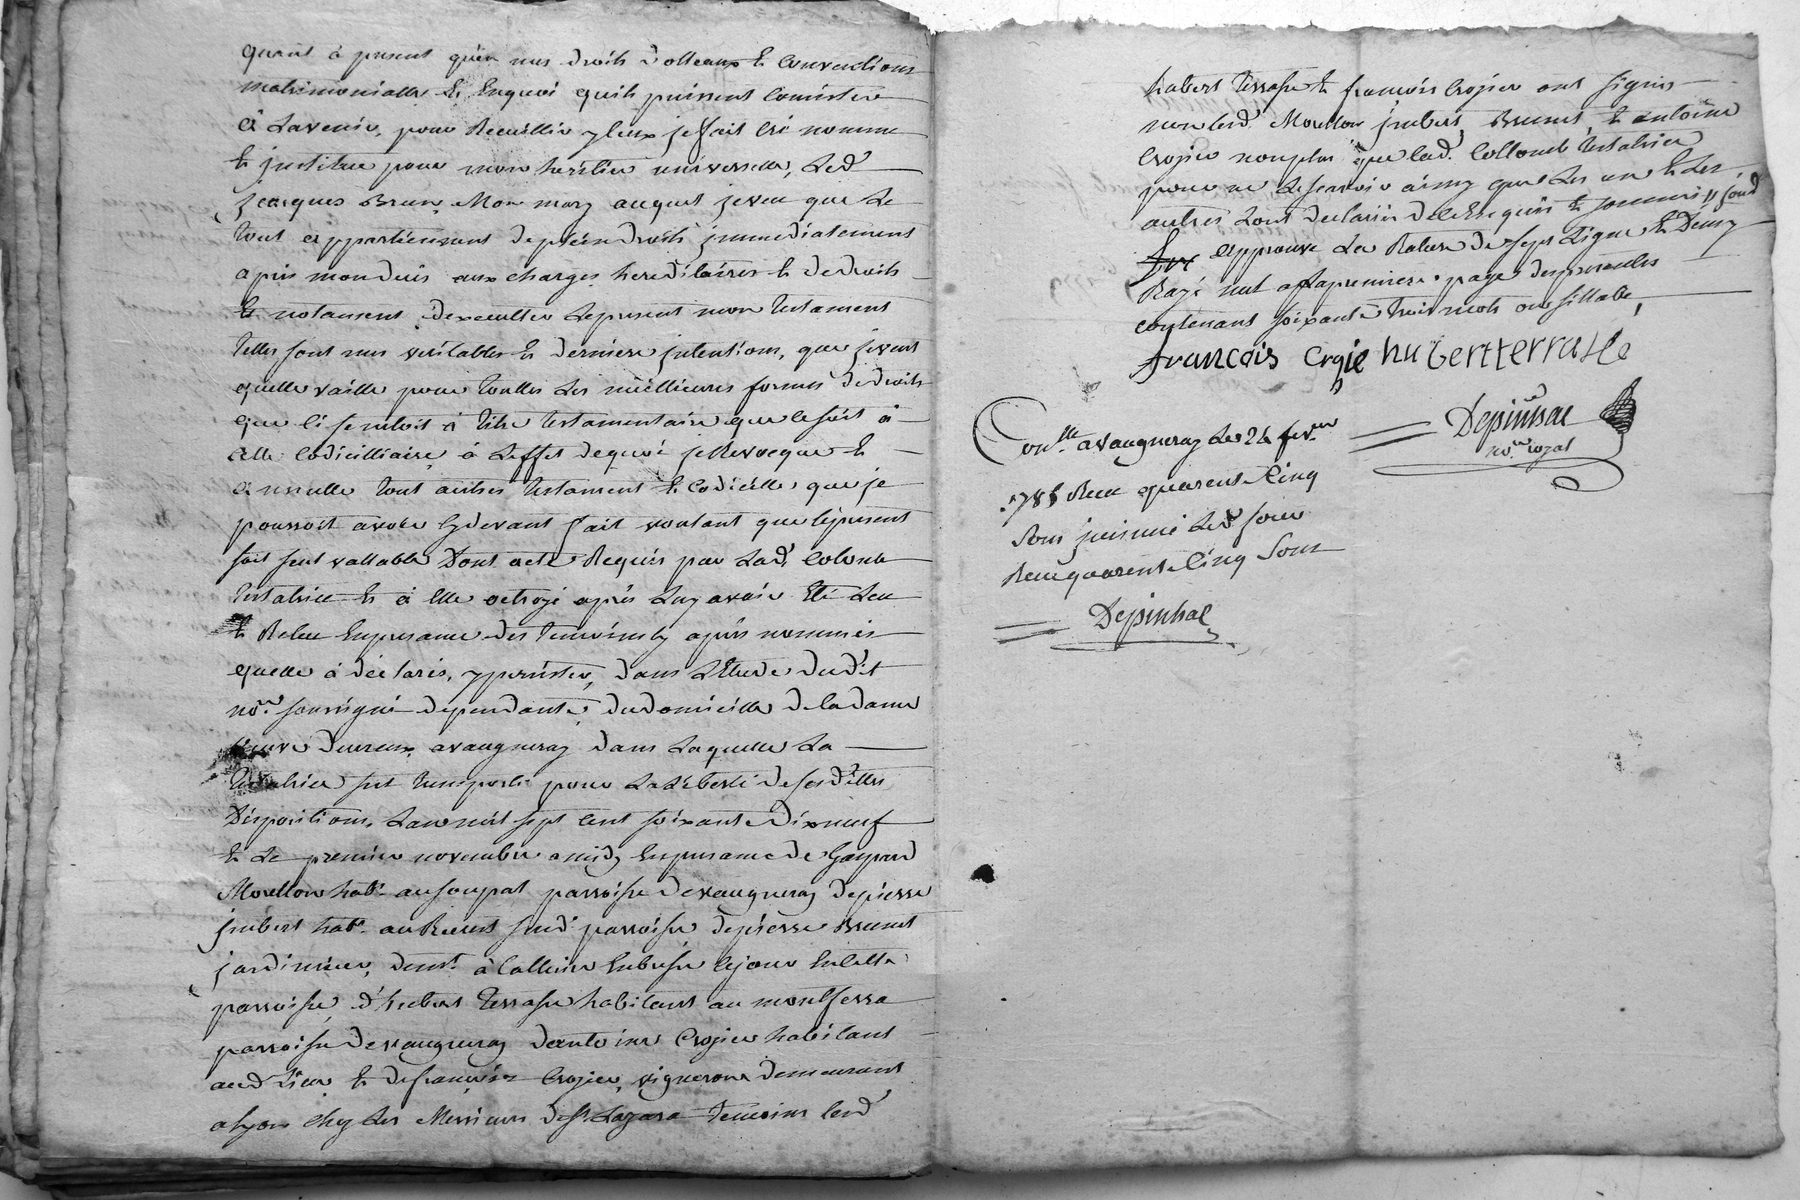 quant à present qu'en mes droits dotteaux & conventions
matrimonialles & enquoi quils puissent consister
à L'avenir, pour Recueillir yceux jeffait cré nomme
& jnstitue pour mon heritier universelle, Led.
jacques Brun Mon mary auquel jeveu que Le
tout appartiennent depleindroits jmmediatement
apres mondeces aux charges hereditaires & dedroits
& notament dexecutter Lepresent mon testament
telles sont mes veritables & derniere jntentions, que jeveut
quelle vaille pour touttes Les meillieures formes dedroits
que ci se netoit à titre testamentaire que cesoit à
celle codicilliaire à Leffet dequoi jeRevoque &
annulle tout autres testament & codicille que je
pourroit avoir cydevant fait voulant que Lepresent
soit seul vallable Dont acte Requis par Lad. colomb
testatrice & à elle octroyé après Luy avoir Eté Leu
& Releu Enpresence des temoins cy après nommés
quelle à déclaré, y persister, dans L'Etude dudit
no.re soussigné dependante, dudomicille de la dame
veuve avaugneray dans Laquelle La
testatrice sest transporté pour LaLiberté desesdittes
Dispositions, Lanmil sept cent soixante dixneuf
& Le premier novembre amidy Enpresence de Gaspard
Moullon hab.t ausoupat parroisse devaugneray depierre
jmbert hab.t auRecret susd. parroisse depierre Brunet
jardinier, dem.t à
parroisse, d'hubert terrasse habitant au montferra
parroisse devaugneray dantoine Crozier habitant
aud Lieu & defrançois Crozier, vigneron demeurant
alyon chez Les Messieurs deSt Lazare temoins Lesd
hubert terrasse & francois Crozier ont signés
non lesd. Moullon jmbert, Brunet, & antoine
Crozier nonplus que lad. Collomb testatrice
pour ne Lesçavoir ainsy que Les un & Les
autres Lont declarer deceEnquis & sommés,
approuve La Rature de sept Ligne & Demy
Rayé nul alapremiere page despresentes
contenant soixante trois mots ou sillabe,
francois Crojie hubertterrasse
Depinhac
no.re royal
Con.lle avaugneray Le 24 fev.er
1785 Receu quarente Cinq
Sous
Receuquarente Cinq Sous
Depinhac